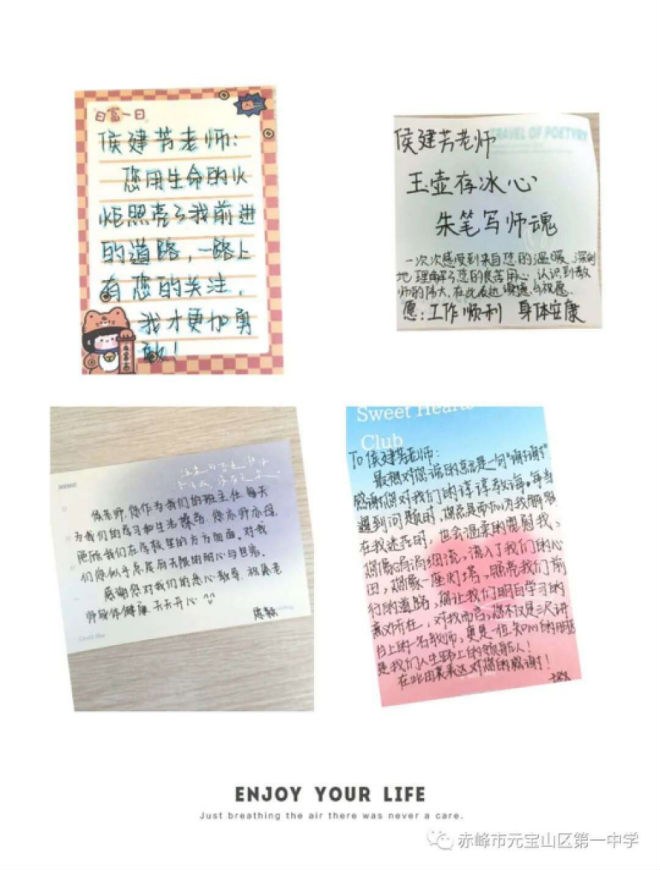 日富一日
侯建芳老师:
您用生命的火
炬照亮了我前进
的道路,一路上
有您的关注,
我才更加勇
敢!
TRAVEL OF POETRY
侯建芳老师
玉壶存冰心
朱笔写师魂
一次次感受到来自您的温暖、深刻
地理解了您的良苦用心,认识到教
师的伟大,在此表达
愿:工作顺利 身体安康
侯老师,您作为我们的班主任,每天
为我们的学习和生活操劳,您亦师亦母,
照顾我们在学校里的方方面面,对我
们您似乎总是有无限的耐心与包容。
感谢您对我们的悉心教导,祝侯老
师身体健康,天天开心 ^^
Sweet Hearts
Club
To侯建芳老师:
最想对您说的总是一句“谢谢”
感谢您对我们的谆谆教诲。每当
遇到问题时,您总是耐心为我解答
在我迷茫时,也会温柔的慰
您像涓涓细流,流入了我们的心
田,您像一座灯塔,照亮我们前
行的道路,您让我们明白学习的
意义所在,对我而言,您不仅是三尺讲
台上的一名教师,更是一位知心的朋友
是我们人生路上的领航人!
在此由衷表达对您的感谢!
ENJOY YOUR LIFE
Just breathing the air there was never a care.
赤峰市元宝山区第一中学